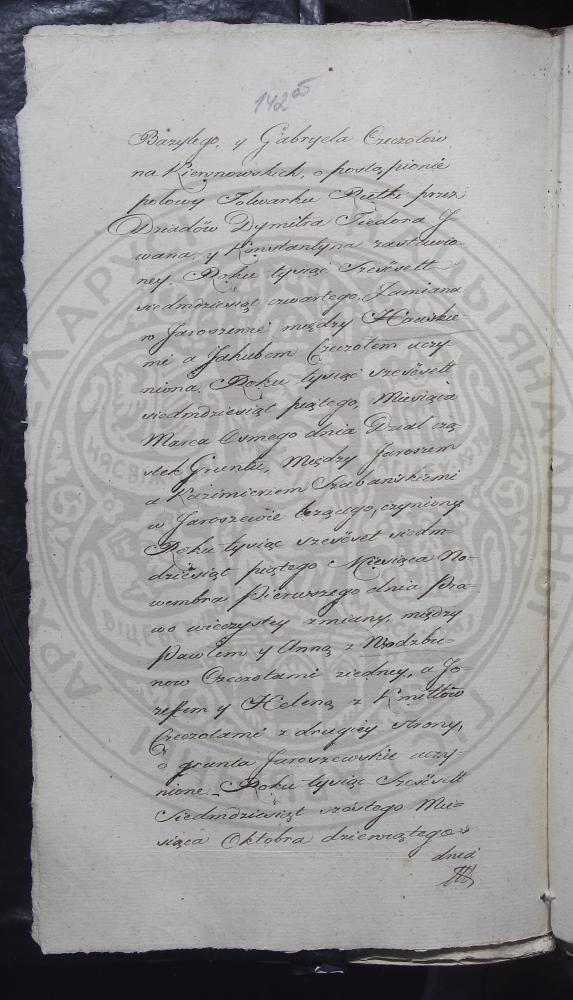 142 об
Bazylego, y Gabryela Czeczotów
na Kiernowskich, o postąpienie
połowy Folwarku Rutki przez
Dziadów Dymitra Fiedora J
wana, y Konstantyna zastawio-
ney. Roku tysiąc Szeséset
siedmdziesiąt czwartego, Zamiana
w Jaroszewie między
mi a Jakubem Czeczotem uczy
niona. Roku tysiąc szesésett
siedmdziesiąt piątego, Miesiąca
Marca Osmego dnia Dział czą
stek Gruntu, Między Jaroszem
a Kazimierzem Szabańskiemi
w Jaroszewie leżącego, czyniony
Roku tysiąc szeséset siedm-
dziesiąt piątego Miesiąca No-
wembra Pierwszego dnia Pra-
wo wieczystey zmiany, między
Pawłem y Anną z
now Czeczotami ziedney, a Jo-
zefem y Heleną z Kmittów
Czeczotami z drugiey strony,
o grunta Jaroszewskie uczy-
nione. Roku tysiąc Szeséset
Siedmdziesiąt szóstego Mie-
siąca Oktobra dziewiątego
dnia